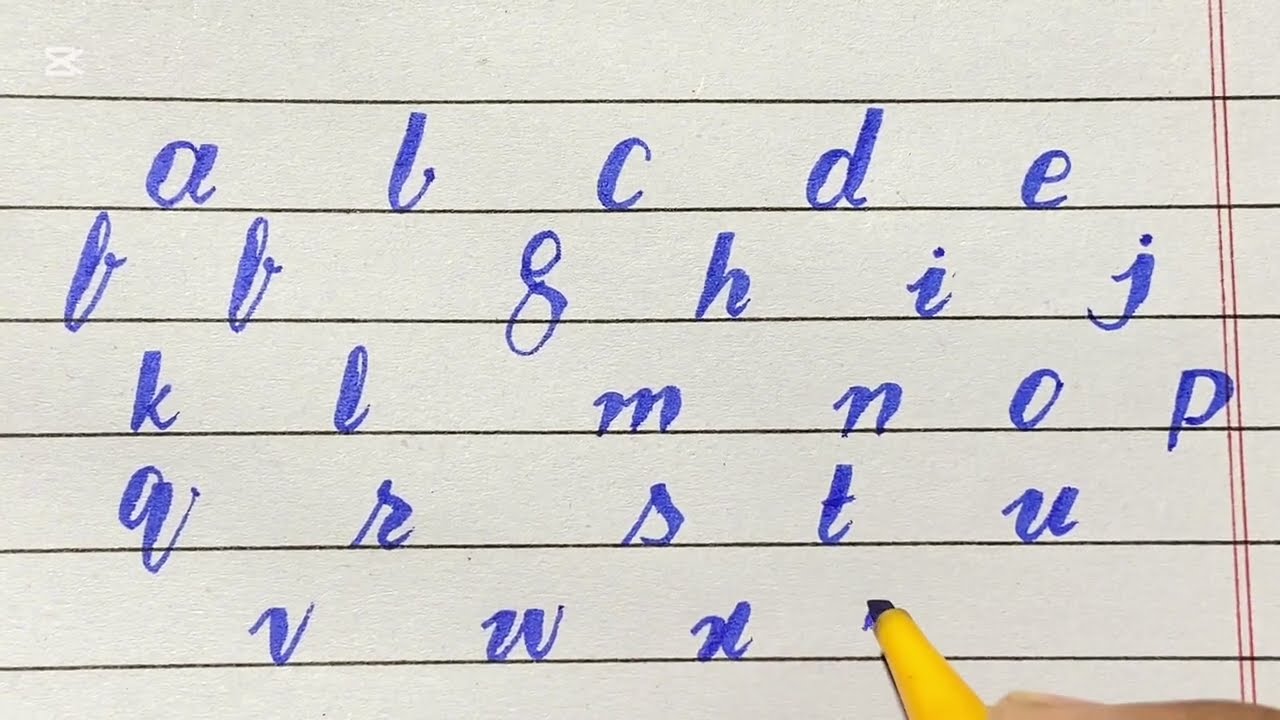 a b c d e
f f g h i j
k l m n o p
q r s t u
v w x